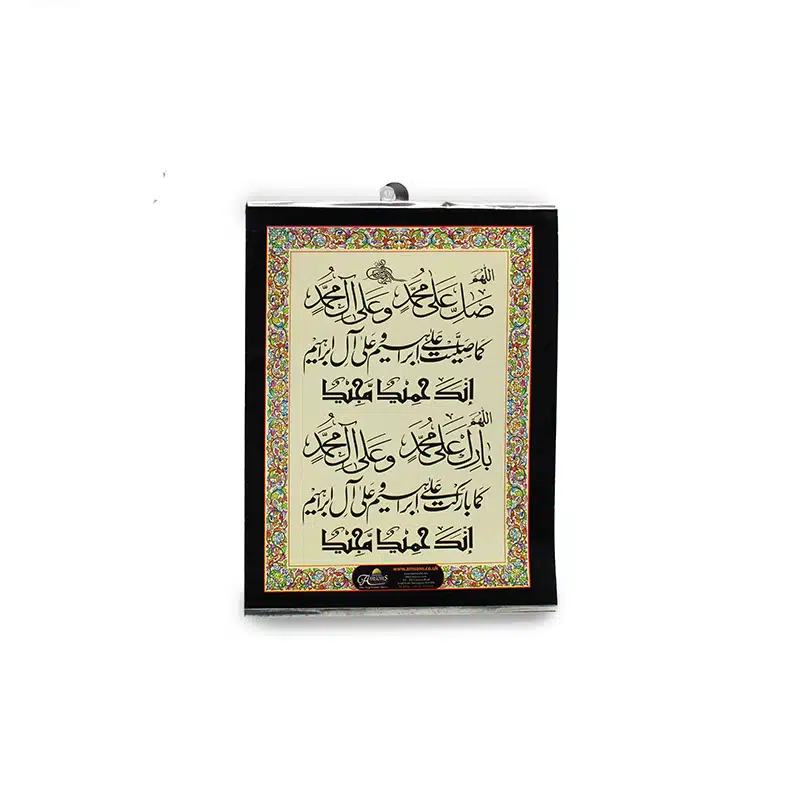 اللهم
صل على محمد وعلى آل محمد
كما صليت على إبراهيم وعلى آل إبراهيم
إنك حميد مجيد
اللهم
بارك على محمد وعلى آل محمد
كما باركت على إبراهيم وعلى آل إبراهيم
إنك حميد مجيد
AMSONS
www.amsons.co.uk